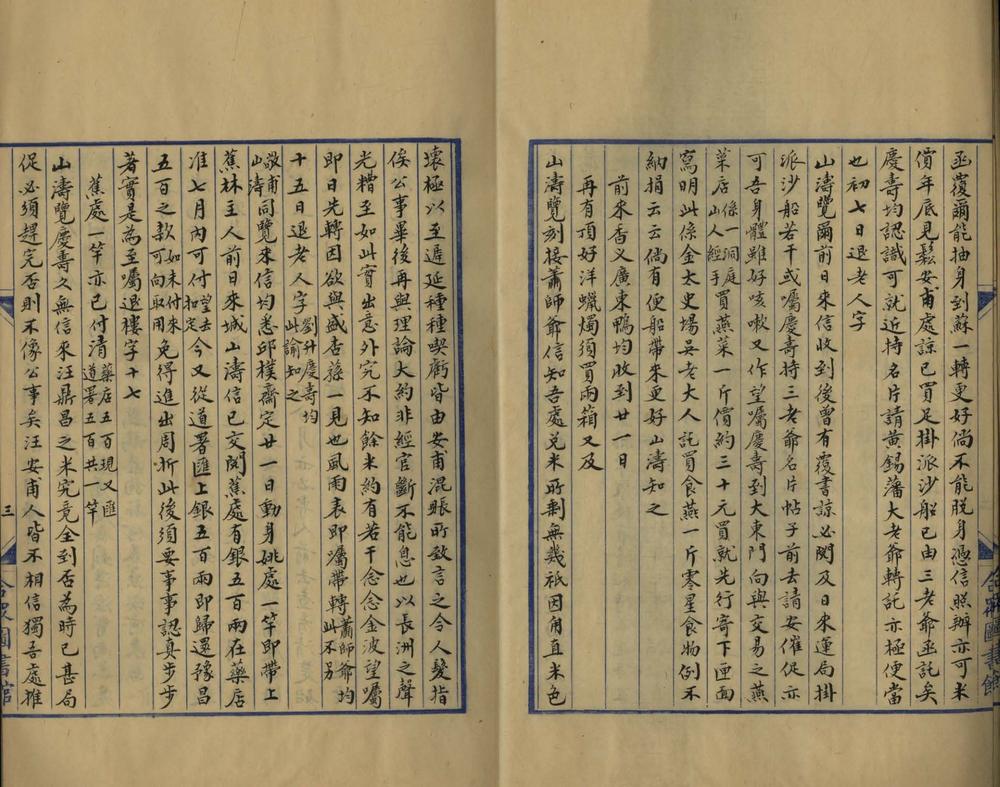 函覆爾能抽身到蘇一轉更好倘不能脫身憑信照辦亦可米
價年底見鬆安甫處諒已買足掛派沙船已由三老爺函託矣
慶壽均認識可就近持名片請黃錫藩大老爺轉託亦極便當
也初七日退老人字
山濤覽爾前日來信收到後曾有覆書諒必閱及日來運局掛
派沙船若干或囑慶壽持三老爺名片帖子前去請安催促亦
可吾身體雖好咳嗽又作望囑慶壽到大東門向與交易之燕
菜店係一洞庭山人經手買燕菜一斤價約三十元買就先行寄下匣面
寫明此係金太史場吳老大人託買食燕一斤零星食物例不
納捐云云倘有便船帶來更好山濤知之
前來香义廣東鴨均收到廿一日
再有頂好洋蠟燭須買兩箱又及
山濤覽刻接蕭師爺信知吾處兌米所剩無幾祇因甪直米色
壞極以至遲延種種喫虧皆由安甫混賬所致言之令人髮指
俟公事畢後再與理論大約非經官斷不能息也以長洲之聲
光糟至如此實出意外究不知餘米約有若干念念金波望囑
即日先轉因欲與盛杏蓀一見也風雨表即囑帶轉蕭師爺均此不另
十五日退老人字劉升慶壽均此諭知之
敬甫山濤同覽來信均悉邱樸齋定廿一日動身姚處一竿即帶上
蕉林主人前日來城山濤信已交閱蕉處有銀五百兩在藥店
准七月內可付望去扣定今又從道署匯上銀五百兩即歸還豫昌
五百之款如未付來可向取用免得進出周折此後須要事事認真步步
著實是為至囑退樓字十七
蕉處一竿亦已付清藥店五百現又匯道署五百共一竿
山濤覽慶壽久無信來汪鼎昌之米究竟全到否為時已甚局
促必須趕完否則不像公事矣汪安甫人皆不相信獨吾處推
三
合眾圖書館
合眾圖書館